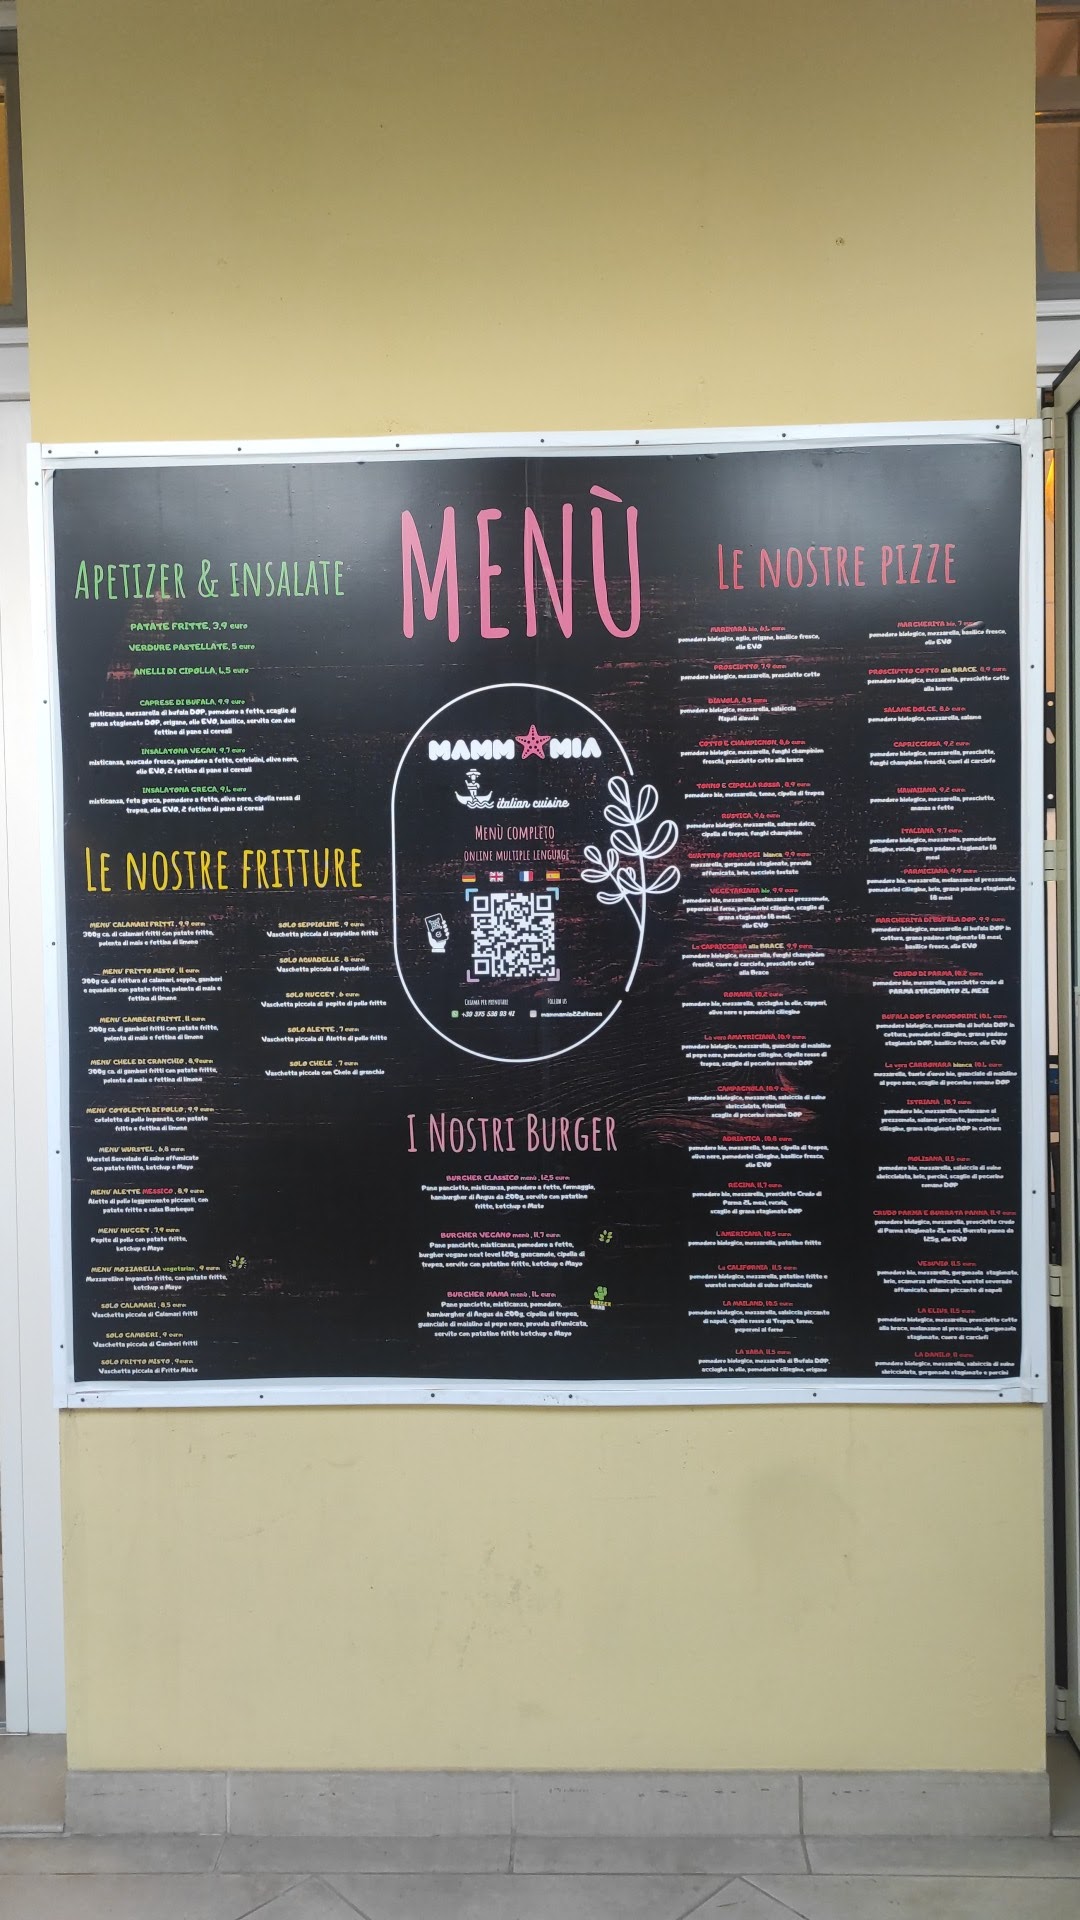 MENÙ
APETIZER & INSALATE
PATATE FRITTE, 3,9 euro
VERDURE PASTELLATE, 5 euro
ANELLI DI CIPOLLA, 4,5 euro
CAPRESE DI BUFALA, 9.9 euro
misticanza, mozzarella di bufala DOP, pomodoro a fette, scaglie di
grana stagionato DOP, origano, olio EVO, basilico, servita con due
fettine di pane ai cereali
INSALATONA VEGAN, 9,7 euro
misticanza, avocado fresco, pomodoro a fette, cetriolini, olive nere,
olio EVO, 2 fettine di pane ai cereali
INSALATONA GRECA, 9,4 euro
misticanza, feta greca, pomodoro a fette, olive nere, cipolla rossa di
tropea, olio EVO, 2 fettine di pane ai cereali
LE NOSTRE FRITTURE
MENU' CALAMARI FRITTI, 9,9 euro
300g ca. di calamari fritti con patate fritte,
polenta di mais e fettina di limone
MENU' FRITTO MISTO, 11 euro
300g ca. di frittura di calamari, seppia, gamberi
e aquadelle con patate fritte, polenta di mais e
fettina di limone
MENU' GAMBERI FRITTI, 11 euro
300g ca. di gamberi fritti con patate fritte,
polenta di mais e fettina di limone
MENU' CHELE DI GRANCHIO, 8,9euro
300g ca. di gamberi fritti con patate fritte,
polenta di mais e fettina di limone
MENU' COTOLETTA DI POLLO, 9,9 euro
cotoletta di pollo impanata, con patate
fritte e fettina di limone
MENU' WURSTEL, 6,8 euro
Wurstel Servelade di suino affumicato
con patate fritte, ketchup e Mayo
MENU' ALETTE MESSICO, 8,9 euro
Alette di pollo leggermente piccanti, con
patate fritte e salsa Barbeque
MENU' NUGGET, 7,9 euro
Pepite di pollo con patate fritte,
ketchup e Mayo
MENU' MOZZARELLA vegetarian, 9 euro
Mozzarelline impanate fritte, con patate fritte,
ketchup e Mayo
SOLO CALAMARI, 8,5 euro
Vaschetta piccola di Calamari fritti
SOLO GAMBERI, 9 euro
Vaschetta piccola di Gamberi fritti
SOLO FRITTO MISTO, 9 euro
Vaschetta piccola di Fritto Misto
SOLO SEPPIOLINE, 9 euro
Vaschetta piccola di seppioline fritte
SOLO AQUADELLE, 8 euro
Vaschetta piccola di Aquadelle
SOLO NUGGET, 6 euro
Vaschetta piccola di pepite di pollo fritte
SOLO ALETTE, 7 euro
Vaschetta piccola di Alette di pollo fritte
SOLO CHELE, 7 euro
Vaschetta piccola con Chele di granchio
MAMM MIA
italian cuisine
MENÙ COMPLETO
ONLINE MULTIPLE LENGUAGE
CHIAMA PER PRENOTARE
FOLLOW US
+39 375 538 93 41
mammamia22altanea
I NOSTRI BURGER
BURGHER CLASSICO menù, 12,5 euro
Pane panciotto, misticanza, pomodoro a fette, formaggio,
hamburgher di Angus da 200g, servito con patatine
fritte, ketchup e Mato
BURGHER VEGANO menù, 11,7 euro
Pane panciotto, misticanza, pomodoro a fette,
burgher vegano next level 120g, guacamole, cipolla di
tropea, servito con patatine fritte, ketchup e Mayo
BURGHER MAMA menù, 14 euro
Pane panciotto, misticanza, pomodoro,
hamburgher di Angus da 200g, cipolla di tropea,
guanciale di maialino al pepe nero, provola affumicata,
servito con patatine fritte ketchup e Mayo
BURGER
MAMA
LE NOSTRE PIZZE
MARINARA bio, 6,4 euro
pomodoro biologico, aglio, origano, basilico fresco,
olio EVO
PROSCIUTTO, 7,9 euro
pomodoro biologico, mozzarella, prosciutto cotto
DIAVOLA, 8,5 euro
pomodoro biologico, mozzarella, salsiccia
Napoli diavola
COTTO E CHAMPIGNON, 8,6 euro
pomodoro biologico, mozzarella, funghi champinion
freschi, prosciutto cotto alla brace
TONNO E CIPOLLA ROSSA, 8,9 euro
pomodoro bio, mozzarella, tonno, cipolla di tropea
RUSTICA, 9,6 euro
pomodoro biologico, mozzarella, salame dolce,
cipolla di tropea, funghi champinion
QUATTRO FORMAGGI bianca 9,9 euro
mozzarella, gorgonzola stagionato, provola
affumicata, brie, nocciole tostate
VEGETARIANA bio, 9,9 euro
pomodoro bio, mozzarella, melanzane al prezzemolo,
peperoni al forno, pomodorini ciliegino, scaglie di
grana stagionato 18 mesi,
olio EVO
La CAPRICCIOSA alla BRACE, 9,9 euro
pomodoro biologico, mozzarella, funghi champinion
freschi, cuore di carciofo, prosciutto cotto
alla Brace
ROMANA, 10,2 euro
pomodoro bio, mozzarella, acciughe in olio, capperi,
olive nere e pomodorini ciliegino
La vera AMATRICIANA, 10,9 euro
pomodoro biologico, mozzarella, guanciale di maialino
al pepe nero, pomodorino ciliegino, cipolle rosse di
tropea, scaglie di pecorino romano DOP
CAMPAGNOLA, 10,9 euro
pomodoro biologico, mozzarella, salsiccia di suino
sbricciolata, friarielli,
scaglie di pecorino romano DOP
ADRIATICA, 10,8 euro
pomodoro bio, mozzarella, tonno, cipolla di tropea,
olive nere, pomodorini ciliegino, basilico fresco,
olio EVO
REGINA, 11,7 euro
pomodoro bio, mozzarella, prosciutto Crudo di
Parma 24 mesi, rucola,
scaglie di grana stagionato DOP
L'AMERICANA, 10,5 euro
pomodoro biologico, mozzarella, patatine fritte
La CALIFORNIA, 11,5 euro
pomodoro biologico, mozzarella, patatine fritte e
wurstel servelade di suino affumicato
LA MAILAND, 10,5 euro
pomodoro biologico, mozzarella, salsiccia piccante
di napoli, cipolle rosse di Tropea, tonno,
peperoni al forno
LA GABA, 11,5 euro
pomodoro biologico, mozzarella di Bufala DOP,
acciughe in olio, pomodorini ciliegino, origano
MARGHERITA bio, 7 euro
pomodoro biologico, mozzarella, basilico fresco,
olio EVO
PROSCIUTTO COTTO alla BRACE, 8,9 euro
pomodoro biologico, mozzarella, prosciutto cotto
alla brace
SALAME DOLCE, 8,6 euro
pomodoro biologico, mozzarella, salame
CAPRICCIOSA, 9,2 euro
pomodoro biologico, mozzarella, prosciutto,
funghi champinion freschi, cuori di carciofo
HAWAIIANA, 9,2 euro
pomodoro biologico, mozzarella, prosciutto,
ananas a fette
ITALIANA, 9,7 euro
pomodoro biologico, mozzarella, pomodorino
ciliegino, rucola, grana padano stagionato 18
mesi
PARMIGIANA, 9,9 euro
pomodoro bio, mozzarella, melanzane al prezzemolo,
pomodorini ciliegino, brie, grana padano stagionato
18 mesi
MARGHERITA DI BUFALA DOP, 9,9 euro
pomodoro bio, mozzarella di bufala DOP in
cottura, grana padano stagionato 18 mesi,
basilico fresco, olio EVO
CRUDO DI PARMA, 10,2 euro
pomodoro bio, mozzarella, prosciutto crudo di
PARMA STAGIONATO 24 MESI
BUFALA DOP E POMODORINI, 10,4 euro
pomodoro bio, mozzarella di bufala DOP in
cottura, pomodorini ciliegino, grana padano
stagionato DOP, basilico fresco, olio EVO
La vera CARBONARA bianca, 10,4 euro
mozzarella, tuorlo d'uovo bio, guanciale di maialino
al pepe nero, scaglie di pecorino romano DOP
ISTRIANA, 10,7 euro
pomodoro bio, mozzarella, melanzane al
prezzemolo, salame piccante, pomodorini
ciliegino, grana stagionato DOP in cottura
MOLISANA, 11,5 euro
pomodoro bio, mozzarella, salsiccia di suino
sbriciolata, brie, porcini, scaglie di pecorino
romano DOP
CRUDO PARMA E BURRATA PANNA, 11,9 euro
pomodoro bio, mozzarella, prosciutto crudo
di Parma stagionato 24 mesi, Burrata panna da
125g, olio EVO
VESUVIO, 11,5 euro
pomodoro bio, mozzarella, gorgonzola stagionato,
brie, scamorza affumicata, wurstel servelade
affumicato, salame piccante di napoli
LA ELIUS, 11,5 euro
pomodoro biologico, mozzarella, prosciutto cotto
alla brace, melanzane al prezzemolo, gorgonzola
stagionato, cuore di carciofi
LA DANILO, 11 euro
pomodoro biologico, mozzarella, salsiccia di suino
sbricciolata, gorgonzola stagionato e porcini